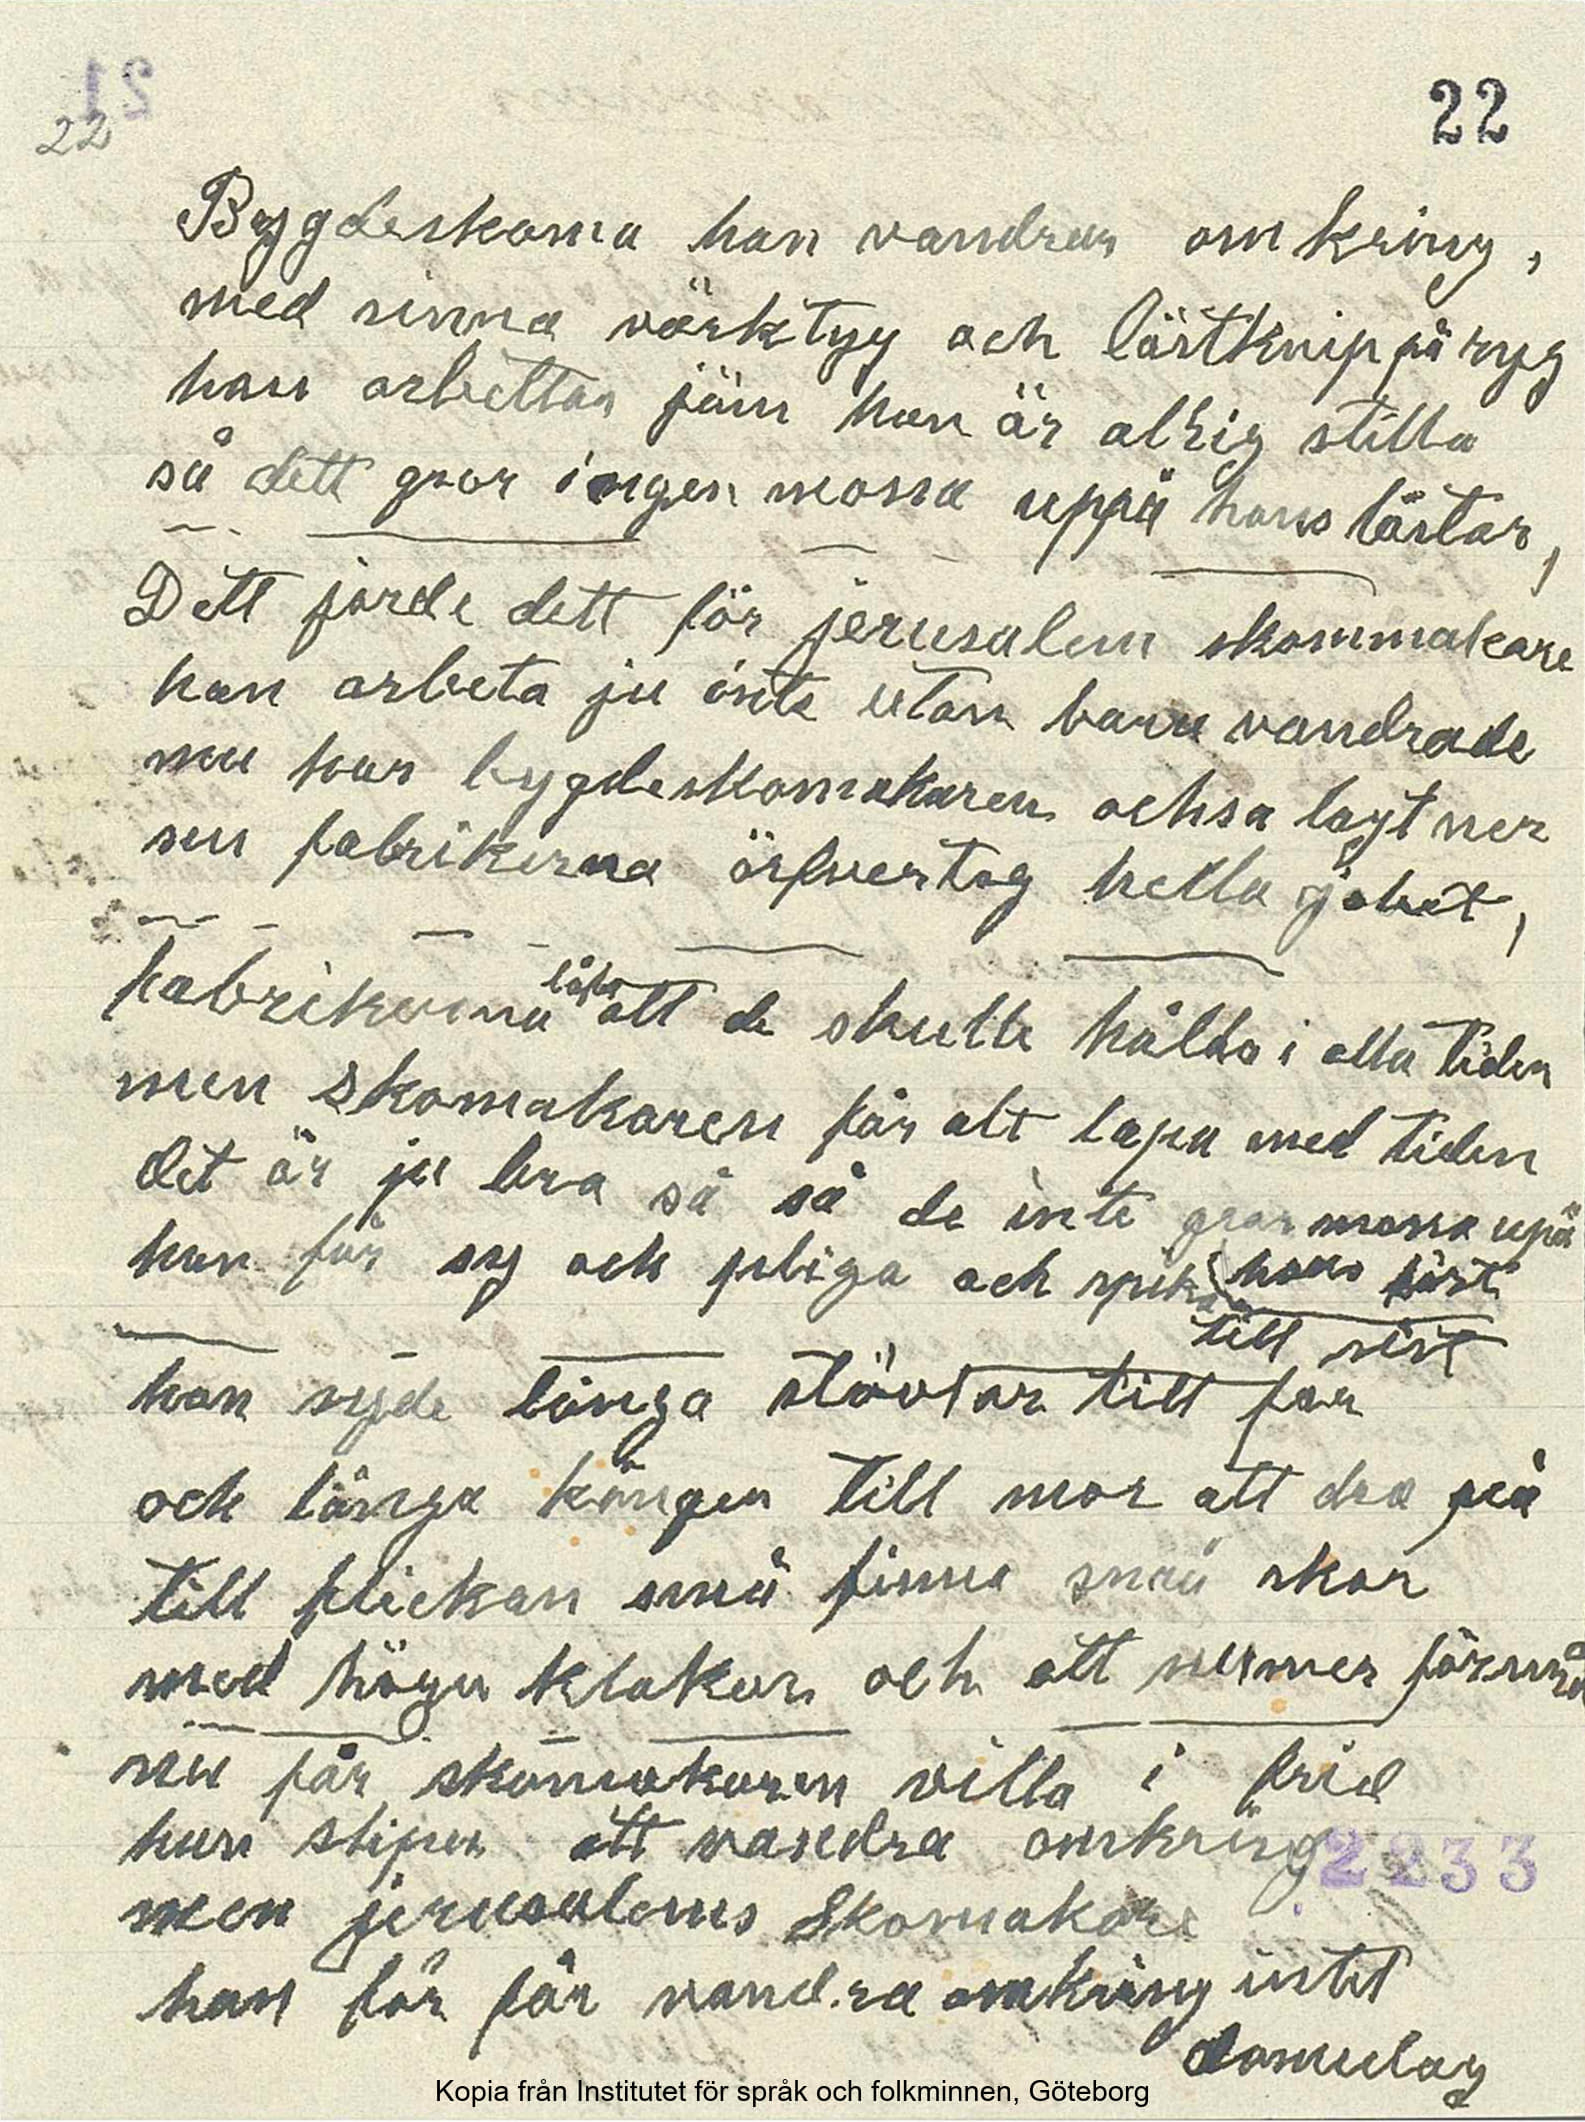 22
21
22
Bygdeskoma han vandrar omkring,
med sinna värktyg och lästknip på ryg
han arbettar jäm han är alrig stilla
så dett gror ingen mossa uppå hans lästar,
Dett jorde dett för jerusalem skommakare
han arbeta ju inte utan bara vandrade
nu har bygdeskomakaren ochsa lagt ner
sen fabrikerna öfvertog hella jobet,
fabrikerna att de skulle hålla i alla tider
men skomakaren får alt lapa med tiden
det är ju bra så så de inte gror mossa upå
han får sy och pliga och spika hans läst
till sist
han syde långa stövlar till far
och långa kängor till mor att dra på
till flickan små finna små skor
med höga klakar och ått
nu får skomakaren villa i frid
han sliper att vandra omkring
2233
men jerusalems Skomakare
han får får vandra omkring intel
domedag
Kopia från Institutet för språk och folkminnen, Göteborg